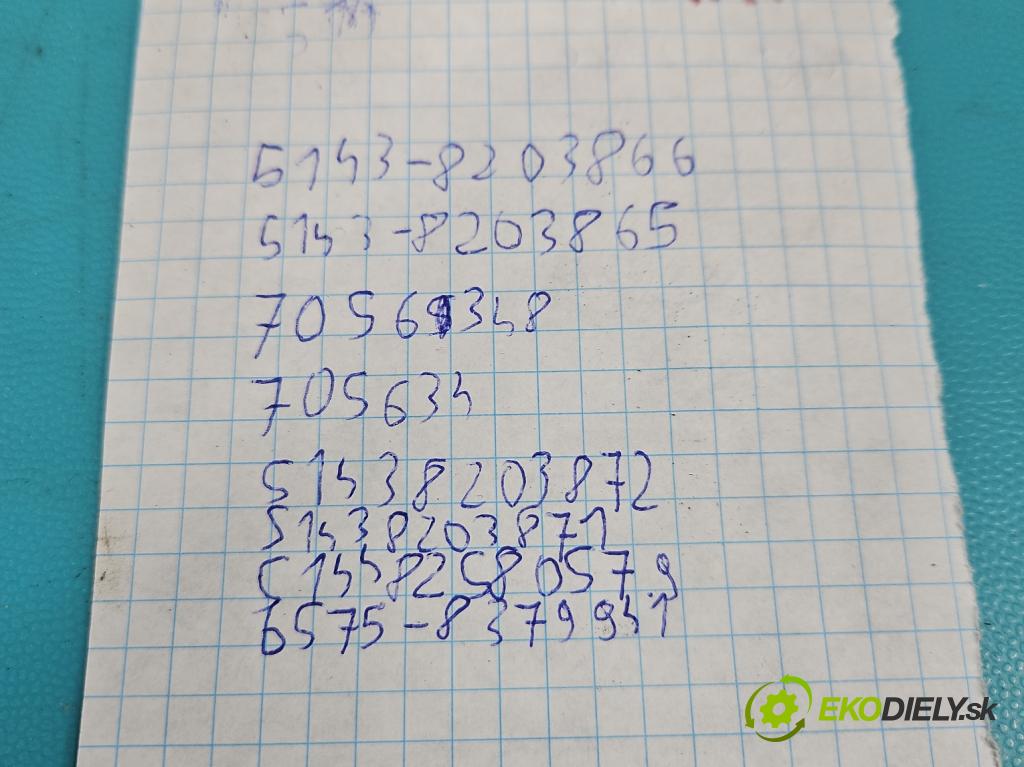 5143-8203866
5143-8203865
705691348
705634
51438203872
51438203871
51448258057.9
6575-8379941
EKODIELY.sk